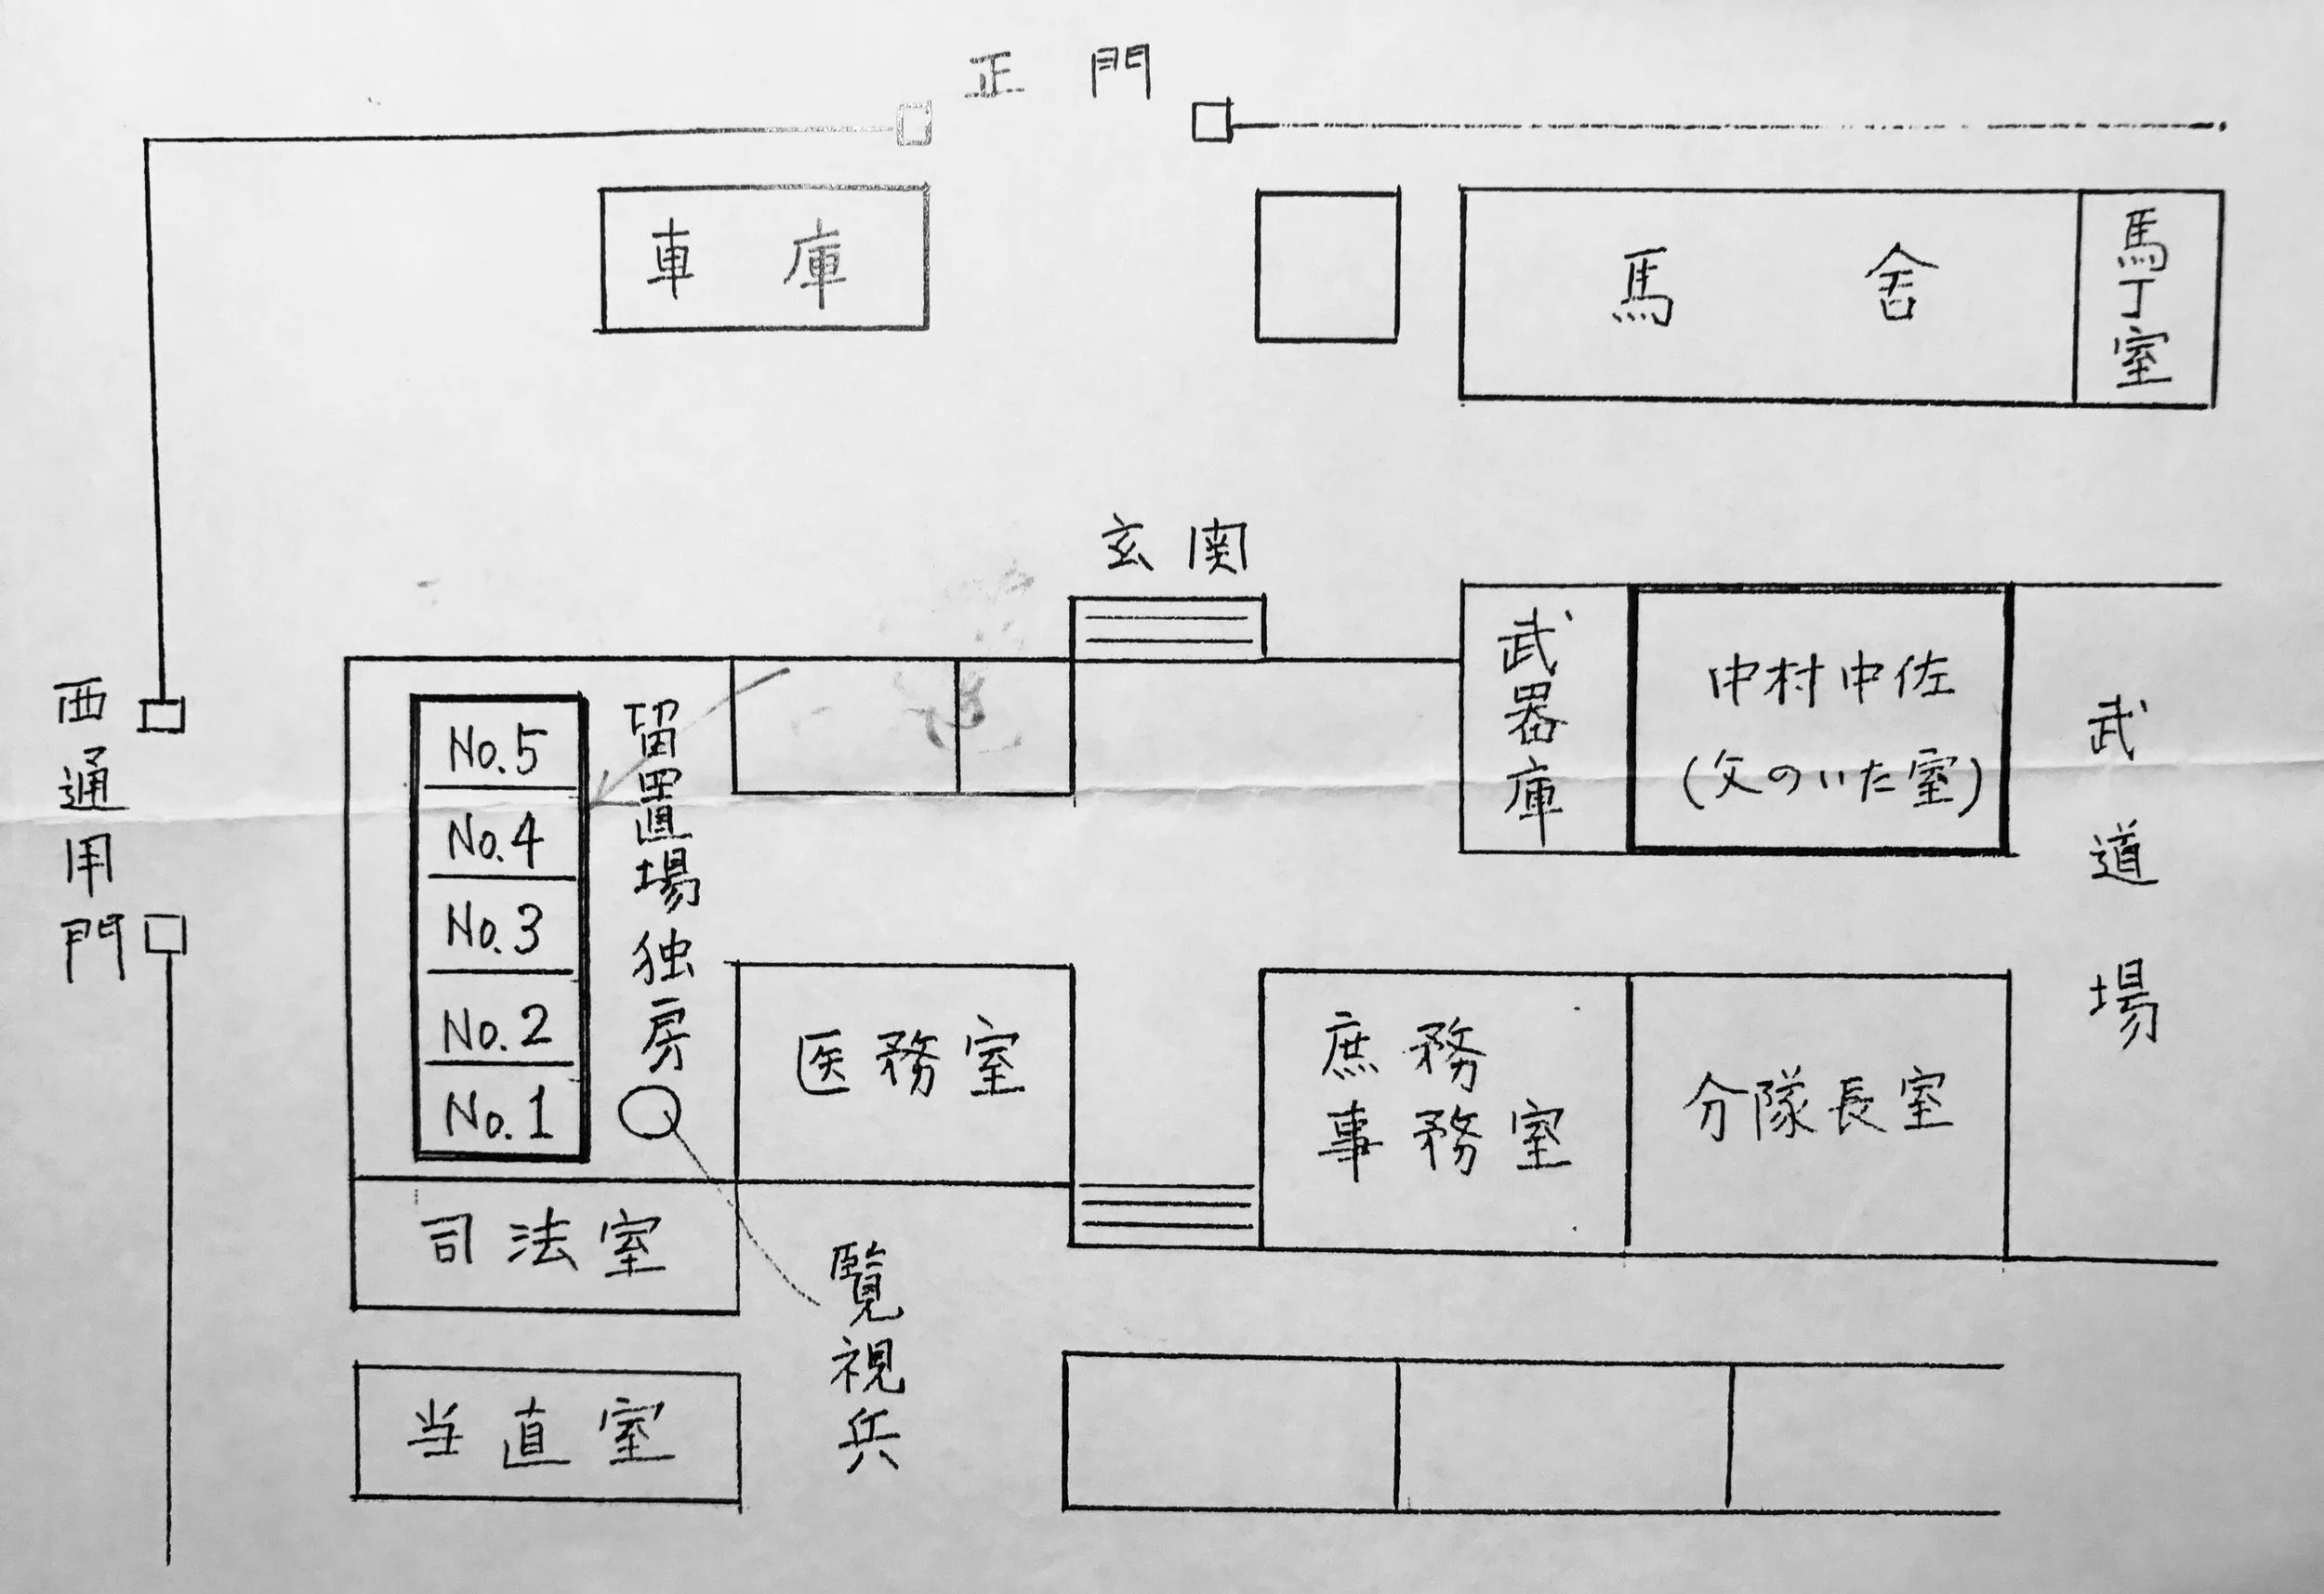 正門
車庫
馬舎
馬丁室
玄関
西通用門
No.5
No.4
No.3
No.2
No.1
留置場独房
武器庫
中村中佐
(父のいた室)
武道場
医務室
庶務
事務室
分隊長室
司法室
覧視兵
当直室